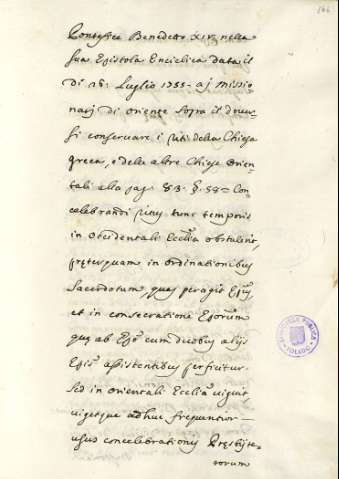 166
Pontefice Benedetto XIV. nella
sua Epistola Enciclica data il
di 26. Luglio 1755. aj Missio
narj di oriente sopra il dover-
si conservare i riti della Chiesa
greca, e delle altre Chiese Orien-
tali alla pag. 83. §. 38 = Con
celebrandi ritus tunc temporis
in Occidentali Ecclīa obstalent,
præterquam in ordinationibus
Sacerdotum, quas peragit Epūs,
et in consecratione Eporum
quæ ab Epō cum duobus alijs
Epis assistentibus perficitur
sed in orientali Ecclīa viguit,
vigetque adhuc frequentior
usus concelebrationis Præsbyte-
rorum
BIBLIOTECA PUBLICA
TOLEDO